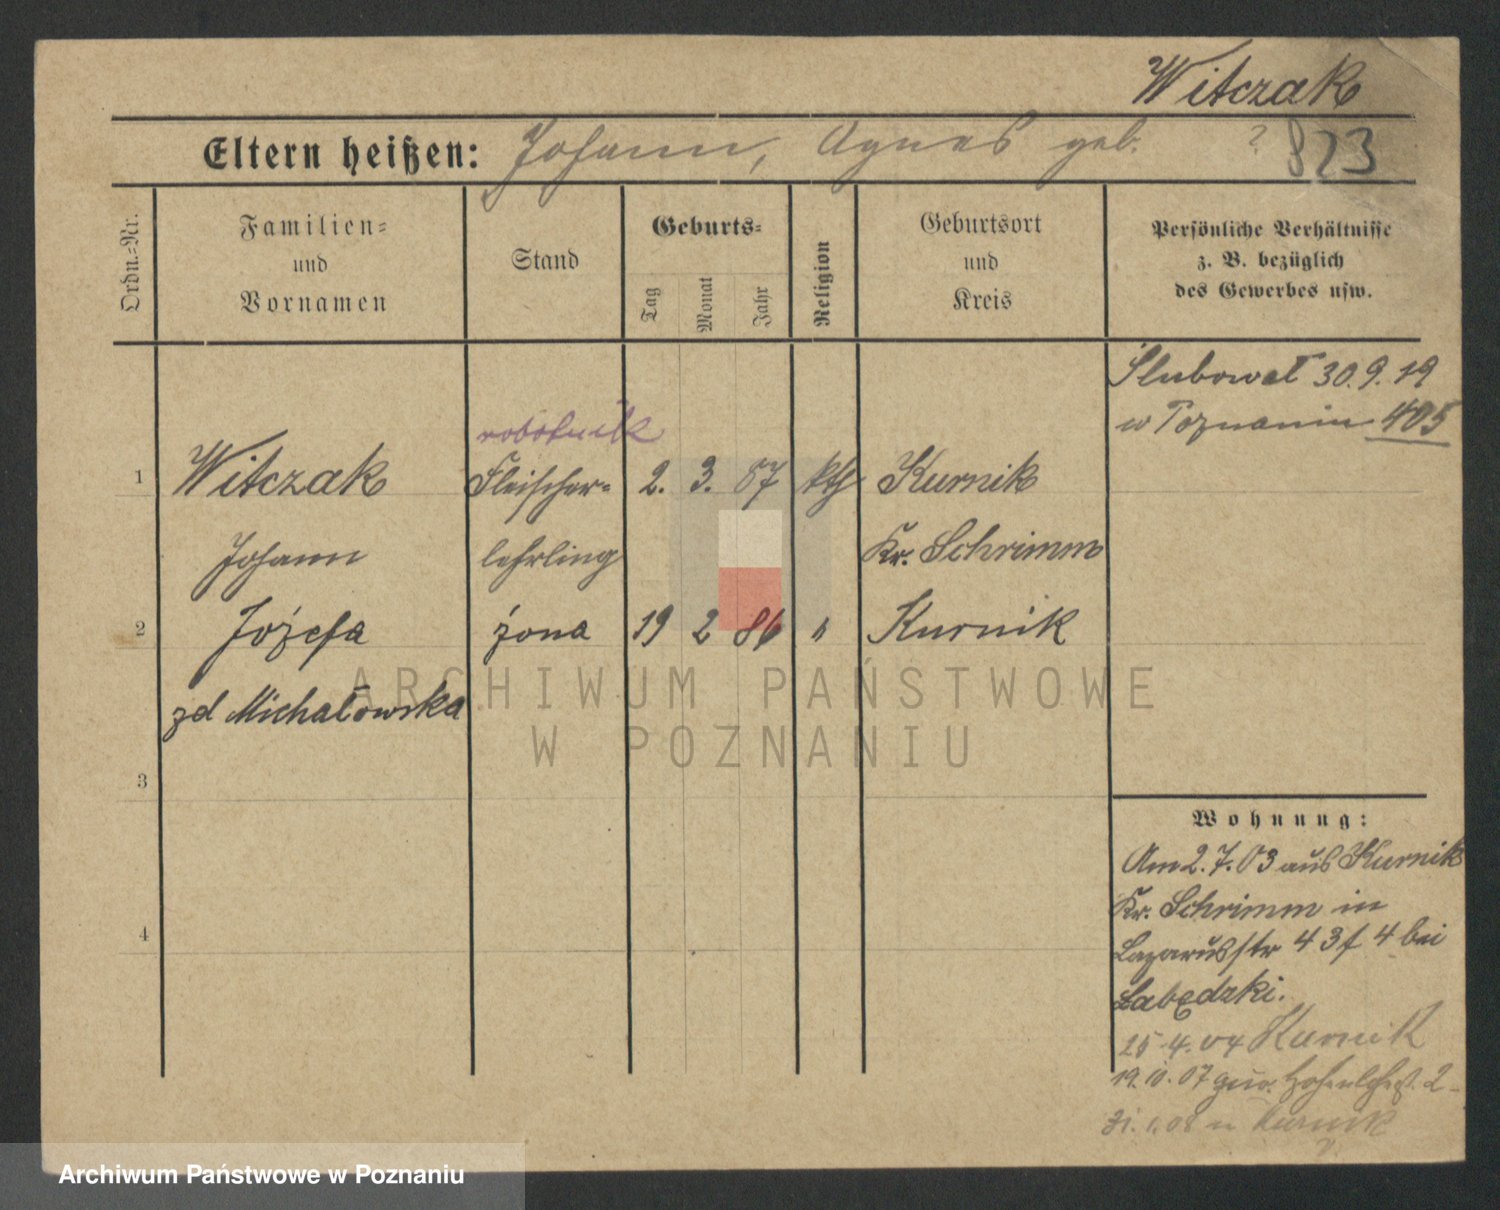 Witczak
Eltern heißen: Johann, Agnes geb. ? 823
Ordn.-Nr.
Familien-
und
Vornamen
Stand
Geburts-
Tag
Monat
Jahr
Religion
Geburtsort
und
Kreis
Persönliche Verhältnisse
z. B. bezüglich
des Gewerbes usw.
Ślubował 30.9.19
w Poznaniu 405
robotnik
1 Witczak Fleischer- 2. 3. 87 kth Kurnik
Johann lehrling Kr. Schrimm
2 Józefa żona 19 2 86 " Kurnik
zd Michałowska
3
4
Wohnung:
Am 2.7.03 aus Kurnik
Kr. Schrimm in
Lazarusstr 43f 4 bei
Łabędzki.
25.4.04 Kurnik
19. 10. 07 2
31.1.08 n Kurnik
ARCHIWUM PAŃSTWOWE
W POZNANIU
Archiwum Państwowe w Poznaniu